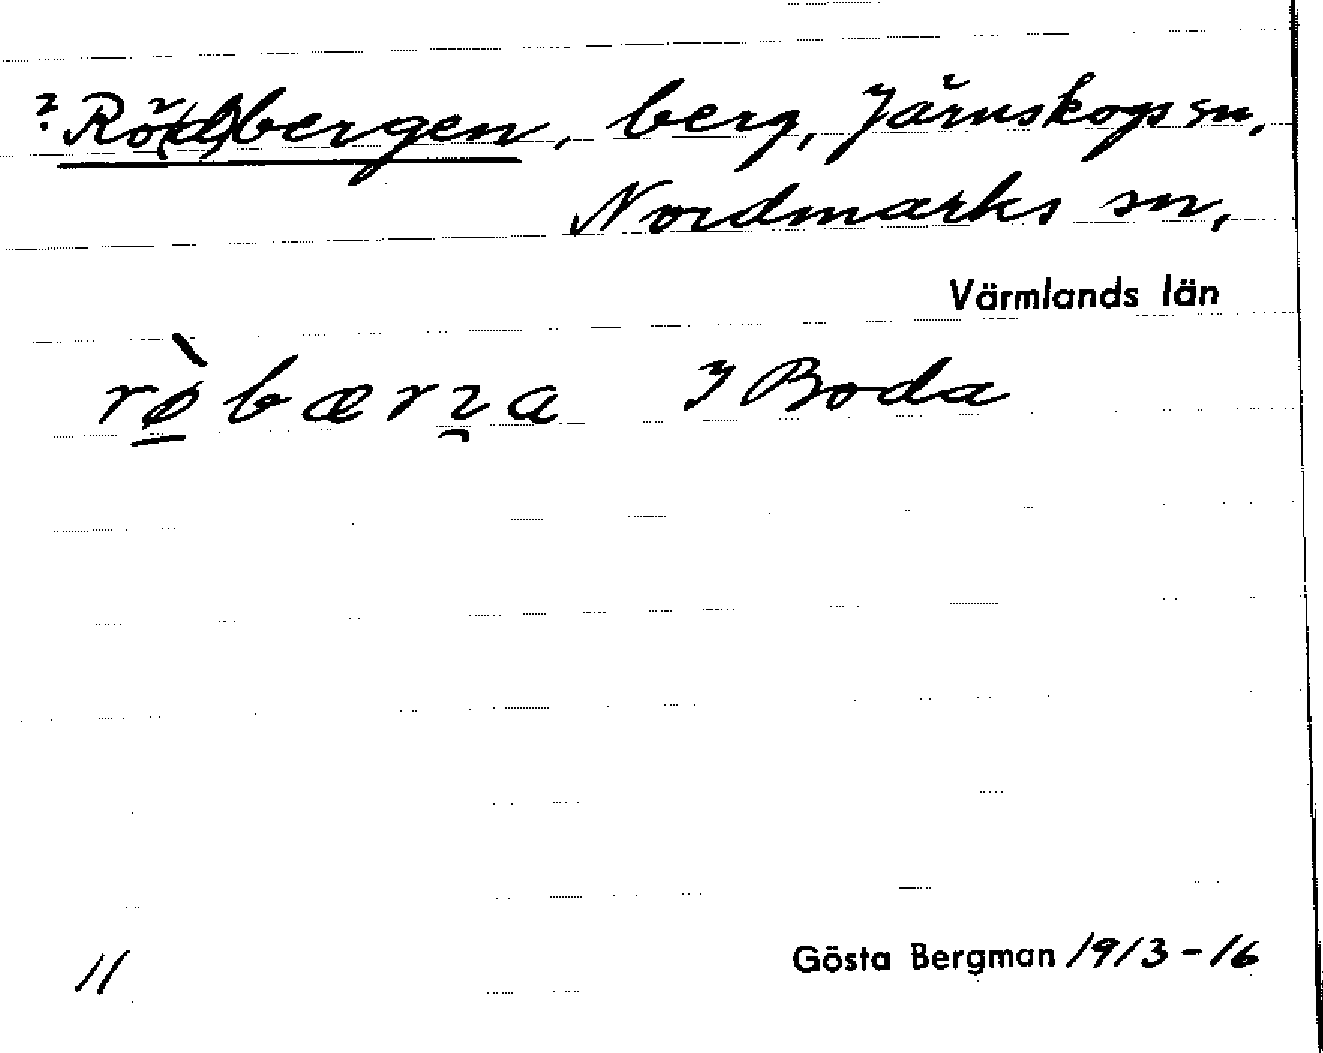 ? Rö(d)bergen, berg, Järnskogs sn,
Nordmarks sn,
Värmlands län
I Boda
11 Gösta Bergman 1913-16